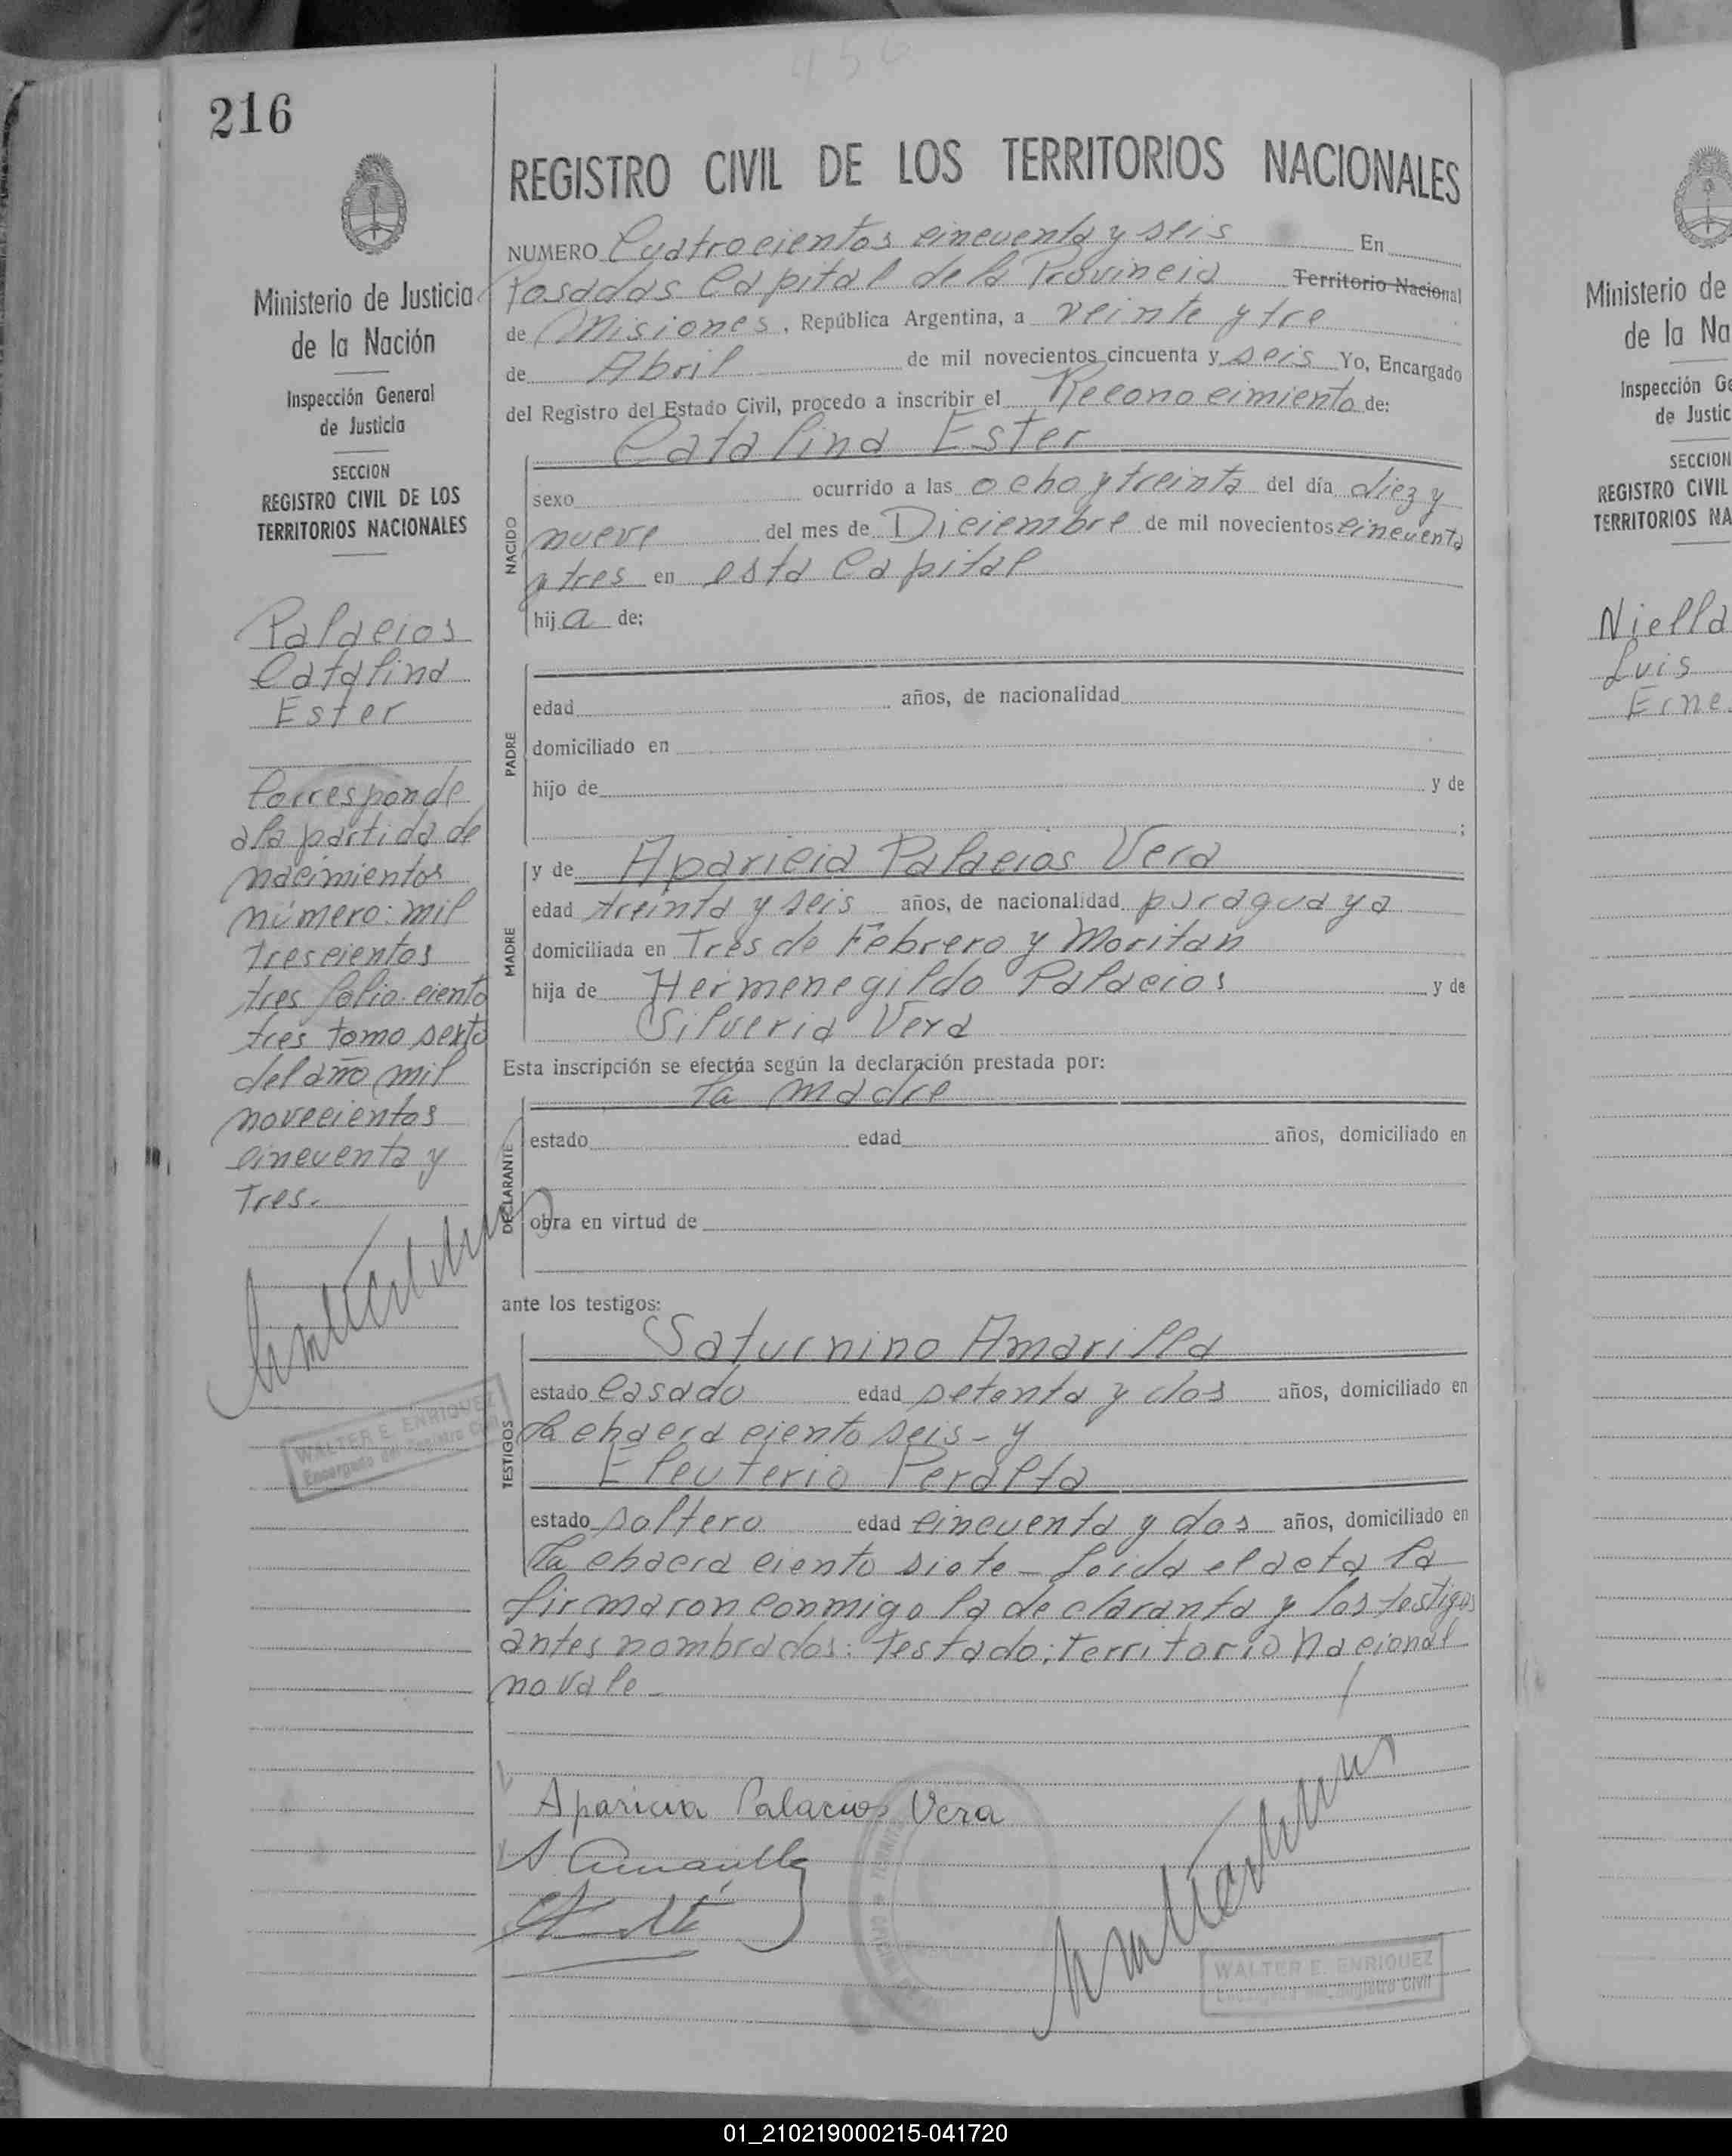 456
216
REGISTRO CIVIL DE LOS TERRITORIOS NACIONALES
Ministerio de Justicia
de la Nación
Inspección General
de Justicia
SECCION
REGISTRO CIVIL DE LOS
TERRITORIOS NACIONALES
Palacios
Catalina
Ester
Corresponde
a la partida de
nacimientos
número: mil
trescientos
tres folio ciento
tres tomo sexto
del año mil
novecientos
cincuenta y
tres.
WALTER E. ENRIQUEZ
Encargado del Registro Civil
NUMERO Cuatrocientos cincuenta y seis En
Posadas Capital de la Provincia Territorio Nacional
de Misiones, República Argentina, a veinte y tre
de Abril de mil novecientos cincuenta y seis Yo, Encargado
del Registro del Estado Civil, procedo a inscribir el Reconocimiento de:
Catalina Ester
NACIDO
sexo ocurrido a las ocho y treinta del día diez y
nueve del mes de Diciembre de mil novecientos cincuenta
y tres en esta Capital
hija de:
PADRE
edad años, de nacionalidad
domiciliado en
hijo de y de
;
MADRE
y de Aparicia Palacios Vera
edad treinta y seis años, de nacionalidad paraguaya
domiciliada en Tres de Febrero y Moritan
hija de Hermenegildo Palacios y de
Silveria Vera
Esta inscripción se efectúa según la declaración prestada por:
la madre
DECLARANTE
estado edad años, domiciliado en
obra en virtud de
ante los testigos:
TESTIGOS
Saturnino Amarilla
estado casado edad setenta y dos años, domiciliado en
la chacra ciento seis - y
Eleuterio Peralta
estado soltero edad cincuenta y dos años, domiciliado en
la chacra ciento siete - leída el acta la
firmaron conmigo la declaranta y los testigos
antes nombrados: Testado: territorio nacional
no vale -
Aparicia Palacios Vera
S Amarilla
WALTER E. ENRIQUEZ
Encargado del Registro Civil
Ministerio de
de la Na
Inspección Ge
de Justic
SECCION
REGISTRO CIVIL
TERRITORIOS NA
Niella
Luis
Erne
01_210219000215-041720